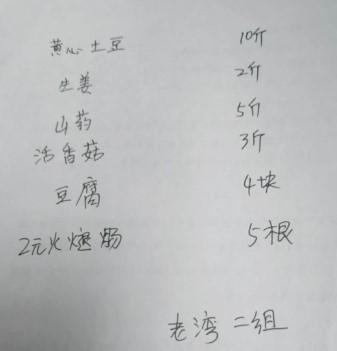 黄心土豆 10斤
生姜 2斤
山药 5斤
活香菇 3斤
豆腐 4块
2元火腿肠 5根
老湾二组